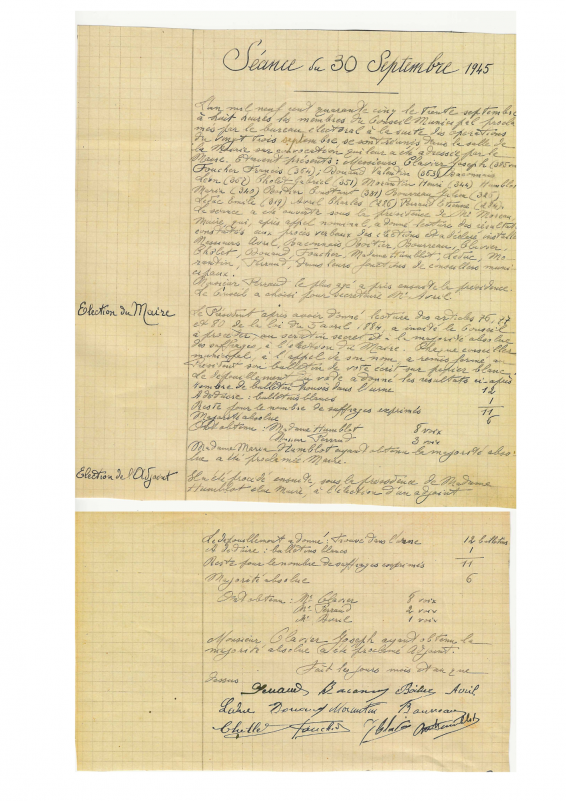 Séance du 30 Septembre 1945
L'an mil neuf cent quarante cinq le trente septembre
à huit heures les membres du Conseil Municipal procla-
més par le bureau électoral à la suite des opérations
du vingt trois septembre se sont réunis dans la salle de
la Mairie sur convocation qui leur a été adressée par le
Maire. Etaient présents : Messieurs Clavier Joseph
Foucher François (364), Edmond Valentin (363), Baconnais
Léon (362) Cholet Gabriel (351) Morantin Henri (344) Humblot
Maria (340) Constant (331) Bourreau
Leduc Emile (319) Avril Charles (286) Ferrand Etienne
La séance a été ouverte sous la présidence de Mr
Maire qui, après appel nominal, a donné lecture des résultats
constatés aux procès verbaux des élections et a déclaré installer
Messieurs Avril, Baconnais, Boitier, Bourreau, Clavier,
Cholet, Edmond, Foucher, Madame Humblot, Leduc, Mo-
rantin, Ferrand, dans leurs fonctions de conseillers muni-
cipaux.
Monsieur Ferrand le plus âgé a pris ensuite la présidence.
Le Conseil a choisi pour secrétaire Mr Avril
Election du Maire
Le Président après avoir donné lecture des articles 76, 77
et 80 de la loi du 5 avril 1884, a invité le Conseil
à procéder au scrutin secret et à la majorité absolue
des suffrages, à l'élection du Maire. Chaque conseiller
municipal, à l'appel de son nom, a remis fermé au
Président son bulletin de vote écrit sur papier blanc.
Le dépouillement du vote a donné les résultats ci-après
Nombre de bulletins trouvés dans l'urne 12
A déduire : bulletins blancs 1
Reste pour le nombre de suffrages exprimés 11
Majorité absolue 6
Ont obtenu : Madame Humblot 8 voix
Monsieur Ferrand 3 voix
Madame Maria Humblot ayant obtenu la majorité abso-
lue a été proclamée Maire.
Election de l'Adjoint
Il a été procédé ensuite, sous la présidence de Madame
Humblot élue Maire, à l'élection d'un adjoint
Le dépouillement a donné : Trouvé dans l'urne 12 bulletins
A déduire : bulletins blancs 1
Reste pour le nombre de suffrages exprimés 11
Majorité absolue 6
Ont obtenu : Mr Clavier 8 voix
Mr Ferrand 2 voix
Mr Avril 1 voix
Monsieur Clavier Joseph ayant obtenu la
majorité absolue a été proclamé Adjoint.
Fait les jours mois et an que
dessus
Avril
Leduc Morantin Bourreau